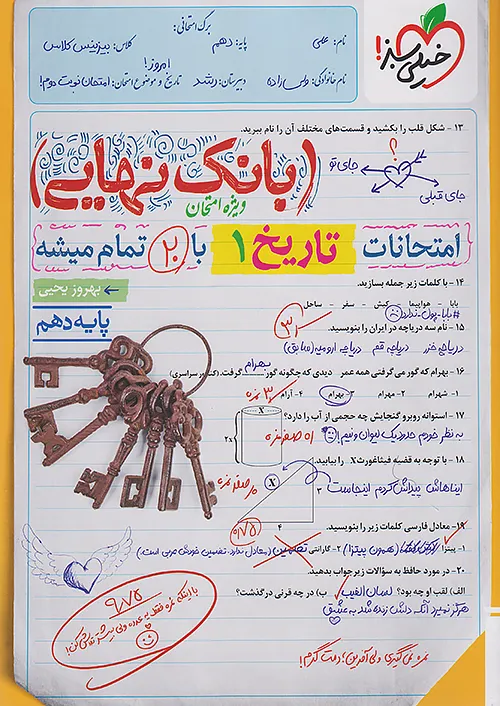 برگ امتحانی:
نام: علی
پایه: دهم
کلاس: بیزینس کلاس
امروز!
نام خانوادگی: ولی زاده
دبیرستان: رشد
تاریخ و موضوع امتحان: امتحان نوبت دوم!
خیلی سبز!
۱۳ - شکل قلب را بکشید و قسمت‌های مختلف آن را نام ببرید.
؟
جای تو
جای قبلی
(بانک نهایی)
ویژه امتحان
امتحانات تاریخ ۱ با ۲۰ تمام میشه
بهروز یحیی
پایه دهم
۱۴ - با کلمات زیر جمله بسازید.
بابا - هواپیما - کیش - سفر - ساحل
#بابا-پول-ندارد
۱۵ - نام سه دریاچه در ایران را بنویسید.
دریاچه خزر دریاچه قم دریاچه ارومیه (سابق)
۱۶ - بهرام که گور می‌گرفتی همه عمر دیدی که چگونه گور بهرام گرفت. (کنکور سراسری)
۱- شهرام ۲- مهرام ۳- بهرام ۴- آرام
۱۷ - استوانه روبرو گنجایش چه حجمی از آب را دارد؟
به نظر خودم حدود یک لیوان و نیم!
X
2x
۱۸ - با توجه به قضیه فیثاغورث X را بیابید.
ایناهاش پیداش کردم اینجاست
X
۳
۴
۱۹- معادل فارسی کلمات زیر را بنویسید.
۱- پیتزا (همون پیتزا) ۲- گارانتی تضمین (معادل ندارد. تضمین خودش عربی است.)
۲۰- در مورد حافظ به سؤالات زیر جواب بدهید.
الف) لقب او چه بود؟ لسان الغیب ب) در چه قرنی درگذشت؟
هرگز نمیرد آنکه دلش زنده شد به عشق
۹/۷۵
با اینکه نمره فقط یه عدده ولی بیشتر تلاش کن!
نمره نمی‌گیری ولی آفرین؛ دمت گرم!